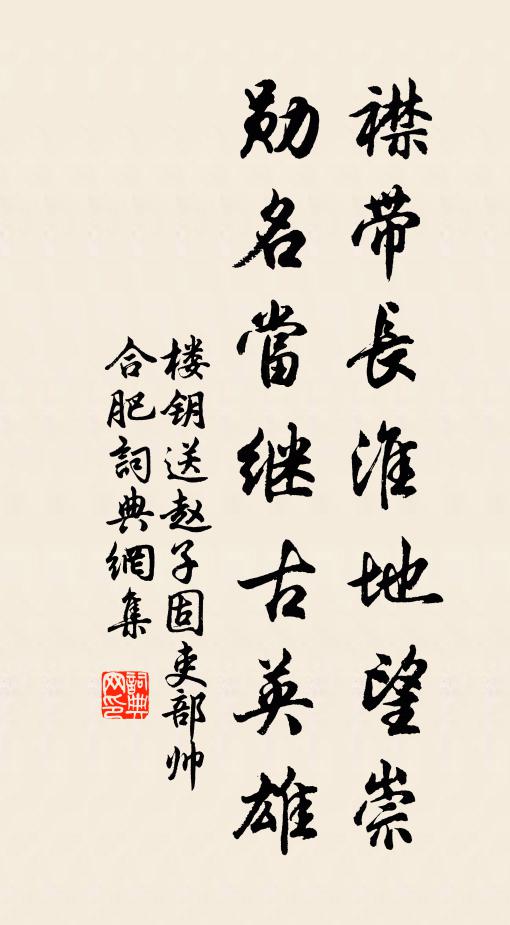 襟带長淮地望崇
勋名當继古英雄
楼钥送赵子固吏部帅
合肥詞典網集
詞典网印